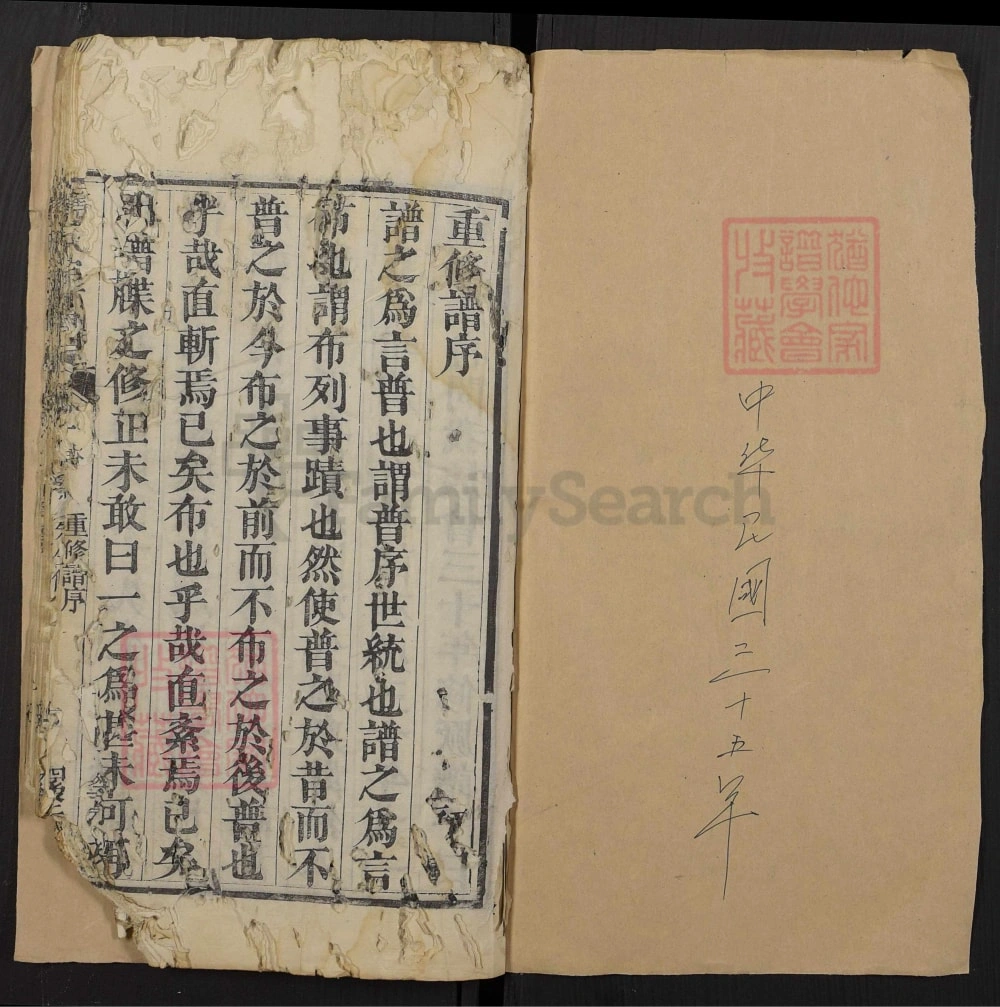 中華民國三十五年
譜學會
收藏
重修譜序
譜之爲言普也謂普序世統也譜之爲言
布也謂布列事蹟也然使普之於昔而不
普之於今布之於前而不布之於後普也
乎哉直斬焉已矣布也乎哉直紊焉已矣
譜牒之修正未敢曰一之爲甚未可
重修譜序
FamilySearch